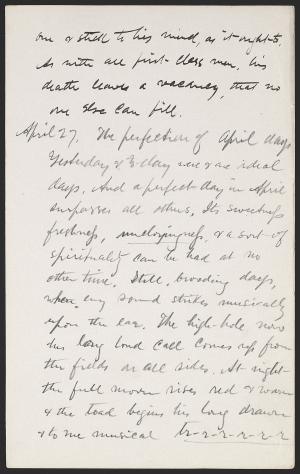 one & stuck to his mind, as it ought to.
As with all first-class men, his
death leaves a vacancy, that no
one else can fill.
April 27. The perfection of April days
Yesterday & to-day were & are ideal
days. And a perfect day in April
surpasses all others. Its sweetness
freshness, uncloyingness, & a sort of
spirituality can be had at no
other time. Still, brooding days,
when any sound strikes musically
upon the ear. The high-hole now
his long loud call comes up from
the fields on all sides. At night
the full moon rises red & warm
& the toad begins his long drawn
& to me musical tr-r-r-r-r-r